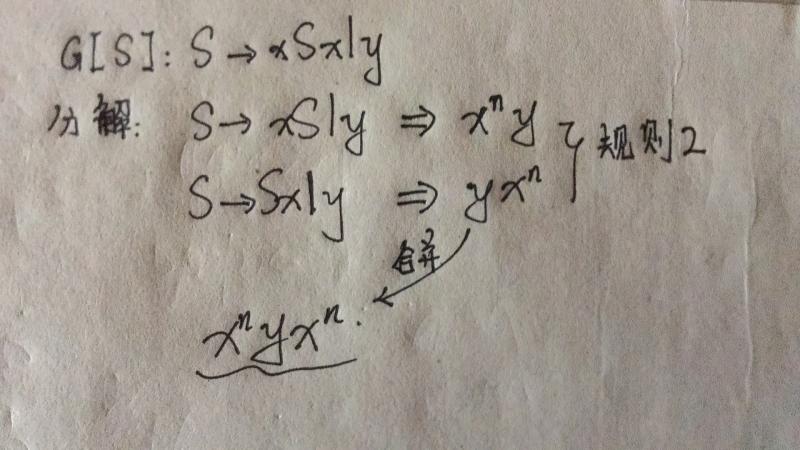 G[S]: S → xSx|y
分解: S → xS|y ⇒ xⁿy } 规则2
S → Sx|y ⇒ yxⁿ
合并
xⁿyxⁿ.